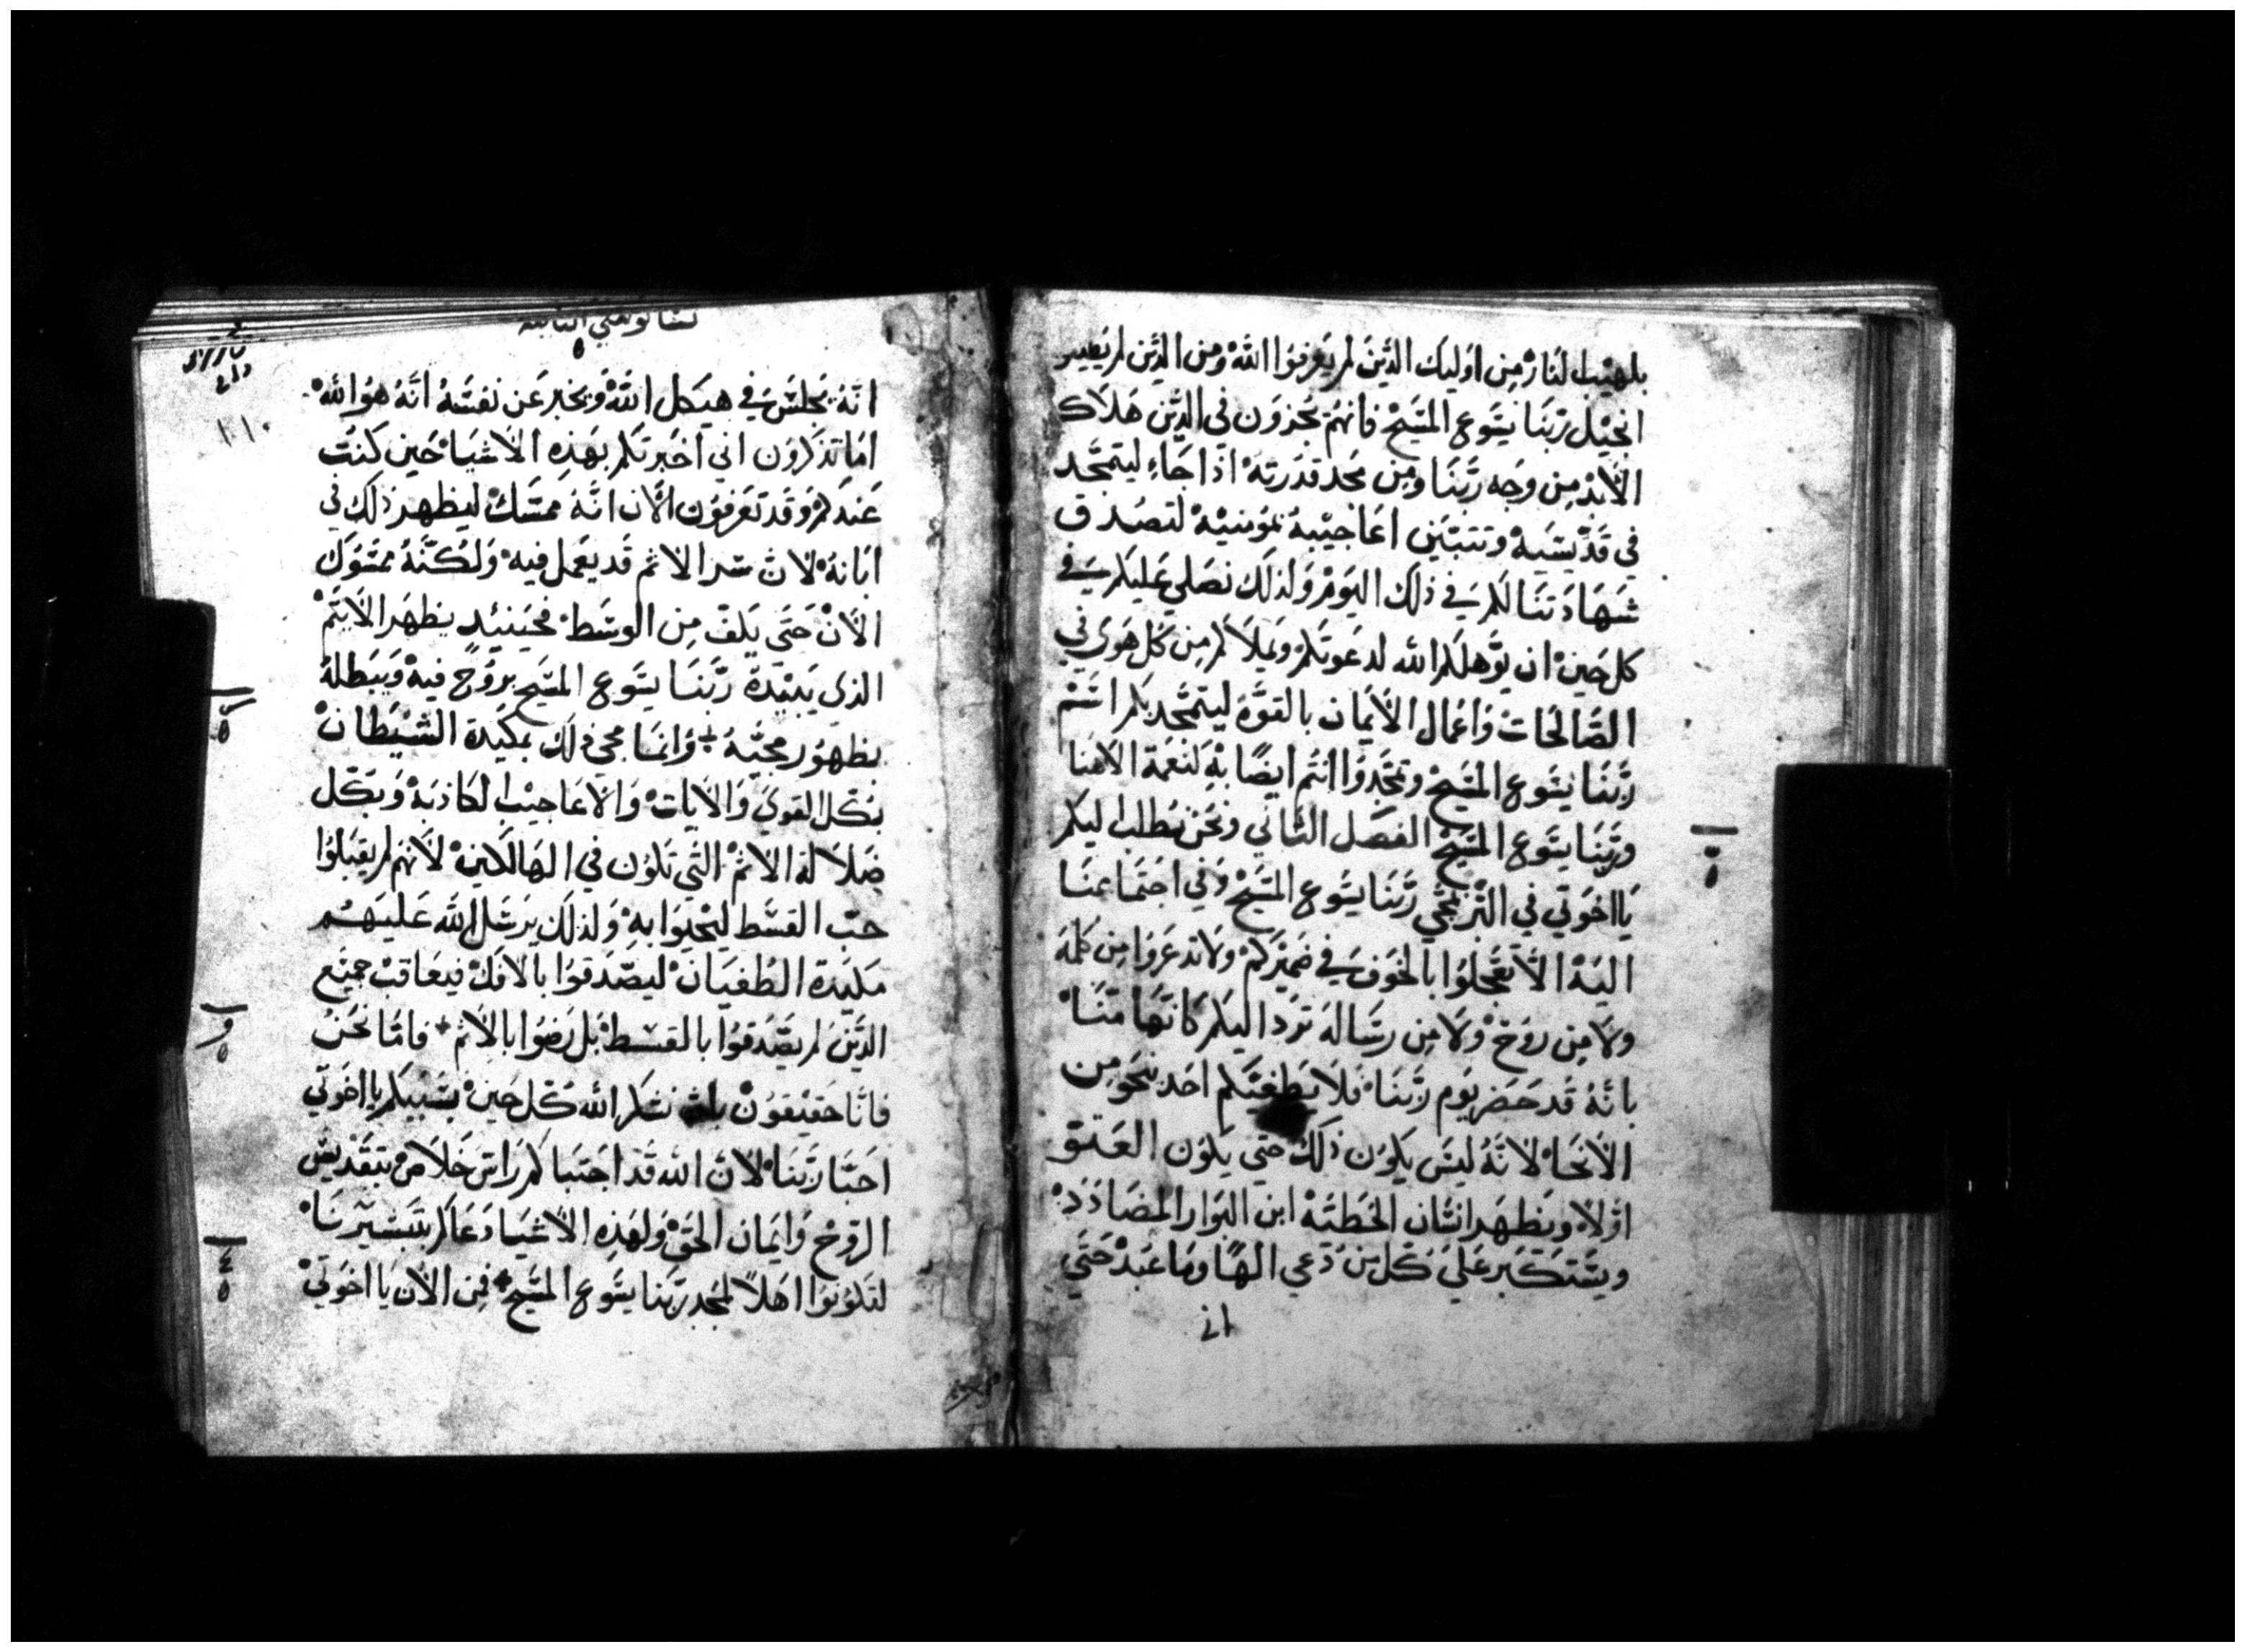 بلهيب النار من اوليك الذين لم يعرفوا الله ومن الذين لم يطيعو
انجيل ربنا يسوع المسيح فانهم يجزون في الدين هلاك
الابد من وجه ربنا ومن مجد قدرته اذا جاء ليتمجد
في قديسيه وتتبين اعاجيبه بمومنيه لتصدق
شهادتنا لكم في ذلك اليوم ولذلك نصلي عليكم في
كل حين ان يوهلكم الله لدعوتكم ويملاكم من كل هوي في
الصالحات واعمال الايمان بالقوة ليتمجد بكم اسم
ربنا يسوع المسيح وتمجدوا انتم ايضا به لنعمة الاهنا
وربنا يسوع المسيح الفصل الثاني ونحن نطلب اليكم
يا اخوتي في مجي ربنا يسوع المسيح وفي اجتماعنا
اليه الا تعجلوا بالخوف في ضميركم ولا تدعروا من كلمة
ولا من روح ولا من رسالة ترد اليكم كانها منا
بانه قد حضر يوم ربنا فلا يطغيكم احد بنحو من
الانحا لانه ليس يكون ذلك حتي يكون العتو
اولا ويظهر انسان الخطية ابن البوار المضادد
ويستكبر علي كل من دعي الها وما عبد حتي
انه
تسالونيقي الثانية
انه يجلس في هيكل الله ويخبر عن نفسه انه هو الله
اما تذكرون اني اخبرتكم بهذه الاشيا حين كنت
عندكم وقد تعرفون الان انه ممسك ليظهر ذلك في
ابانه لان سر الاثم قد يعمل فيه ولكنه ممسوك
الان حتي يكف من الوسط فحينيد يظهر الاثيم
الذي يبيده ربنا يسوع المسيح بروح فيه ويبطله
بظهور مجيه وانما مجي ذلك بمكيدة الشيطان
بكل القوي والايات والاعاجيب الكاذبة وبكل
ضلالة الاثم التي تكون في الهالكين لانهم لم يقبلوا
حب القسط ليحيوا به ولذلك يرسل الله عليهم
مكيدة الطغيان ليصدقوا بالافك فيعاقب جميع
الذين لم يصدقوا بالقسط بل رضوا بالاثم فاما نحن
فانا حقيقون نشكر الله كل حين بسببكم يا اخوتي
احبا ربنا لان الله قد اجتباكم راس خلاص بتقديس
الروح وايمان الحق ولهذه الاشيا دعاكم بتبشيرنا
لتكونوا اهلا لمجد ربنا يسوع المسيح فمن الان يا اخوتي